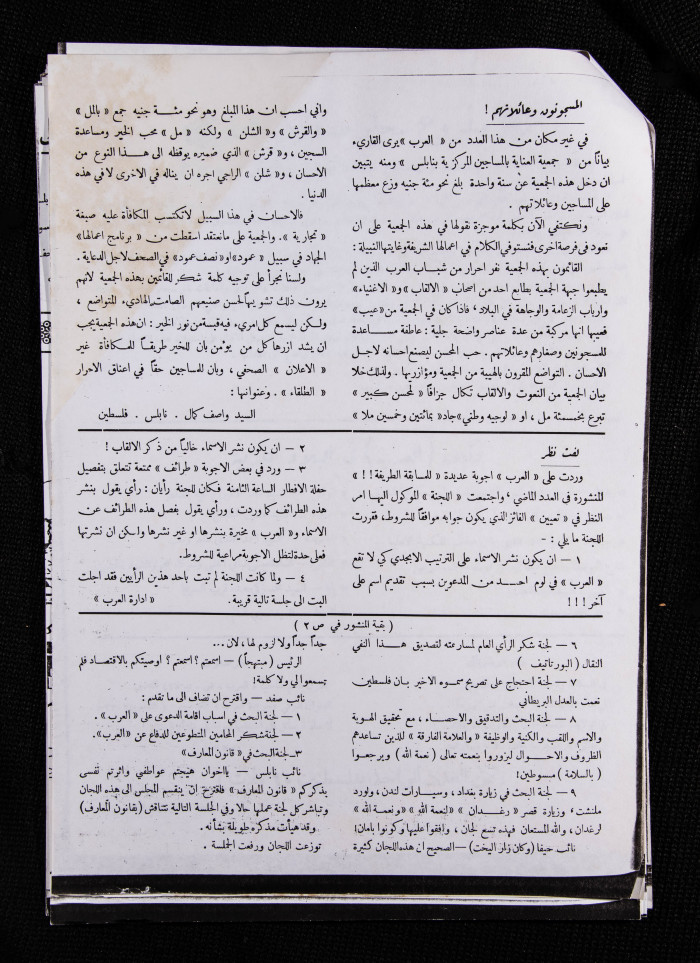 المسجونون وعائلاتهم !
في غير مكان من هذا العدد من « العرب » يرى القارىء
بياناً من « جمعية العناية بالمساجين المركزية بنابلس » ومنه يتبين
ان دخل هذه الجمعية عن سنة واحدة بلغ نحو مئة جنيه وزع معظمها
على المساجين وعائلاتهم .
ونكتفي الآن بكلمة موجزة نقولها في هذه الجمعية على ان
نعود في فرصة اخرى فنستوفي الكلام في اعمالها الشريفة وغايتها النبيلة :
القائمون بهذه الجمعية نفر احرار من شباب العرب الذين لم
يطبعوا جبهة الجمعية بطابع احد من اصحاب « الالقاب » و« الاغنياء »
وارباب الزعامة والوجاهة في البلاد ، فاذا كان في الجمعية من «عيب»
فعيبها انها مركبة من عدة عناصر واضحة جلية : عاطفة مساعدة
للمسجونين وصغارهم وعائلاتهم . حب المحسن ليصنع احسانه لاجل
الاحسان . التواضع المقرون بالهيبة من الجمعية ومؤازريها . ولذلك خلا
بيان الجمعية من النعوت والالقاب تكال جزافاً « لمحسن كبير »
تبرع بخمسمئة مل ، او « لوجيه وطني » جاد « بمائتين وخمسين ملا »
واني احسب ان هذا المبلغ وهو نحو مئة جنيه جمع « بالمل »
« والقرش » و« الشلن » ولكنه « مل » محب الخير ومساعدة
السجين ، و« قرش » الذي ضميره يوقظه الى هذا النوع من
الاحسان ، و« شلن » الراجي اجره ان يناله في الاخرى لا في هذه
الدنيا .
فالاحسان في هذا السبيل لا تكتسب المكافأة عليه صبغة
« تجارية » . والجمعية على ما نعتقد اسقطت من « برنامج اعمالها »
الجهاد في سبيل « عمود » او « نصف عمود » في الصحف لاجل الدعاية .
ولسنا نجرأ على توجيه كلمة شكر للقائمين بهذه الجمعية لانهم
يرون ذلك تشويهاً لحسن صنيعهم الصامت الهادىء المتواضع ،
ولكن ليسمع كل امرىء فيه قبسة من نور الخير : ان هذه الجمعية يجب
ان يشد ازرها كل من يؤمن بان للخير طريقاً للمكافأة غير
« الاعلان » الصحفي ، وبان للمساجين حقاً في اعناق الاحرار
« الطلقاء » . وعنوانها :
السيد واصف كمال . نابلس . فلسطين
لفت نظر
وردت على « العرب » اجوبة عديدة « للمسابقة الطريفة !! »
المنشورة في العدد الماضي ، واجتمعت « اللجنة » الموكول اليها امر
النظر في « تعيين » الفائز الذي يكون جوابه موافقاً للشروط ، فقررت
اللجنة ما يلي : –
١ – ان يكون نشر الاسماء على الترتيب الابجدي كي لا تقع
« العرب » في لوم احد من المدعوين بسبب تقديم اسم على
آخر !!!
٢ – ان يكون نشر الاسماء خالياً من ذكر الالقاب !
٣ – ورد في بعض الاجوبة « طرائف » ممتعة تتعلق بتفصيل
حفلة الافطار الساعة الثامنة فكان للجنة رأيان : رأي يقول بنشر
هذه الطرائف كما وردت ، ورأي يقول بفصل هذه الطرائف عن
الاسماء و« العرب » مخيرة بنشرها او غير نشرها ولكن ان نشرتها
فعلى حدة لتظل الاجوبة مراعية للشروط.
٤ – ولما كانت اللجنة لم تبت باحد هذين الرأيين فقد اجلت
البت الى جلسة تالية قريبة .
« ادارة العرب »
( بقية المنشور في ص ٢ )
٦ – لجنة شكر الرأي العام لمسارعته لتصديق هذا النفي
النقال ( البورتاتيف )
٧ – لجنة احتجاج على تصريح سموه الاخير بان فلسطين
نعمت بالعدل البريطاني
٨ – لجنة البحث والتدقيق والاحصاء ، مع تحقيق الهوية
والاسم واللقب والكنية والوظيفة « والعلامة الفارقة » للذين تساعدهم
الظروف والاحوال ليزوروا بنعمته تعالى ( نعمة الله ) ويرجعوا
( بالسلامة ) مبسوطين !
٩ – لجنة البحث في زيارة بغداد ، وسيارات لندن ، ولورد
ملتشت ، وزيارة قصر « رغدان » « لنعمة الله » و« نعمة الله »
لرغدان ، والله المستعان فهذه تسع لجان ، وافقوا عليها وكونوا بامان !
نائب حيفا ( وكان زلمة البخت ) – الصحيح ان هذه اللجان كثيرة
جداً جداً ولا لزوم لها ، لان ...
الرئيس ( مبتهجاً ) – اسمعتم ؟ اسمعتم ؟ اوصيتكم بالاقتصاد فلم
تسمعوا لي ولا كلمة !
نائب صفد – واقترح ان تضاف الى ما تقدم :
١ – لجنة البحث في اسباب اقامة الدعوى على « العرب » .
٢ – لجنة شكر المحامين المتطوعين للدفاع عن «العرب».
٣ – لجنة البحث في « قانون المعارف »
نائب نابلس – يا اخوان هيجتم عواطفي واثرتم نفسي
بذكركم « قانون المعارف » فلنقترح ان ينقسم المجلس الى هذه اللجان
وتباشر كل لجنة عملها حالاً وفي الجلسة التالية نتناقش ( بقانون المعارف )
وقد هيأت مذكرة طويلة بشأنه .
توزعت اللجان ورفعت الجلسة .